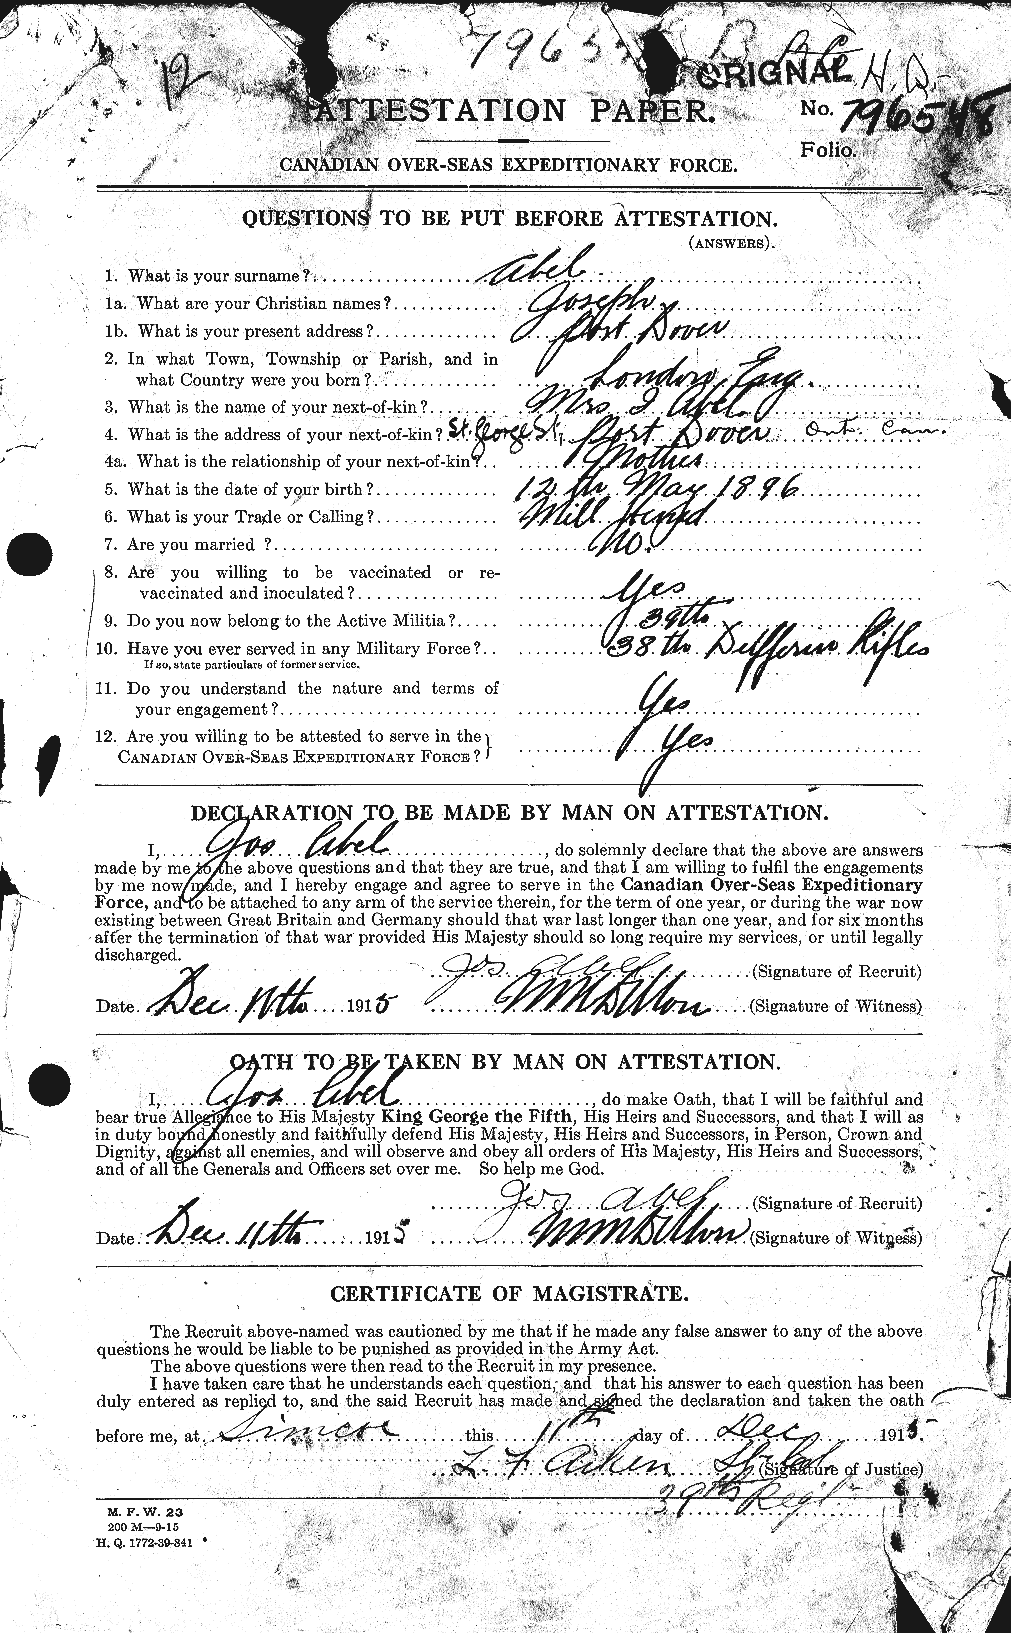 7963
12
ORIGINAL H.Q.
ATTESTATION PAPER.
No. 796548
Folio.
CANADIAN OVER-SEAS EXPEDITIONARY FORCE.
QUESTIONS TO BE PUT BEFORE ATTESTATION.
(ANSWERS).
1. What is your surname? Abel
1a. What are your Christian names? Joseph
1b. What is your present address? Port Dover
2. In what Town, Township or Parish, and in
what Country were you born? London, Eng.
3. What is the name of your next-of-kin? Mrs J Abel
4. What is the address of your next-of-kin? St. George St, Port Dover Ont. Can.
4a. What is the relationship of your next-of-kin? Mother
5. What is the date of your birth? 12th May 1896
6. What is your Trade or Calling? Mill Hand
7. Are you married ? No.
8. Are you willing to be vaccinated or re-
vaccinated and inoculated? Yes
9. Do you now belong to the Active Militia? 39th
10. Have you ever served in any Military Force? 38th Dufferin Rifles
If so, state particulars of former service.
11. Do you understand the nature and terms of
your engagement? Yes
12. Are you willing to be attested to serve in the
CANADIAN OVER-SEAS EXPEDITIONARY FORCE? Yes
DECLARATION TO BE MADE BY MAN ON ATTESTATION.
I, Jos Abel, do solemnly declare that the above are answers
made by me to the above questions and that they are true, and that I am willing to fulfil the engagements
by me now made, and I hereby engage and agree to serve in the Canadian Over-Seas Expeditionary
Force, and to be attached to any arm of the service therein, for the term of one year, or during the war now
existing between Great Britain and Germany should that war last longer than one year, and for six months
after the termination of that war provided His Majesty should so long require my services, or until legally
discharged.
Jos Abel (Signature of Recruit)
Date Dec 11th 1915 (Signature of Witness)
OATH TO BE TAKEN BY MAN ON ATTESTATION.
I, Jos Abel, do make Oath, that I will be faithful and
bear true Allegiance to His Majesty King George the Fifth, His Heirs and Successors, and that I will as
in duty bound honestly and faithfully defend His Majesty, His Heirs and Successors, in Person, Crown and
Dignity, against all enemies, and will observe and obey all orders of His Majesty, His Heirs and Successors,
and of all the Generals and Officers set over me. So help me God.
Jos Abel (Signature of Recruit)
Date Dec 11th 1915 (Signature of Witness)
CERTIFICATE OF MAGISTRATE.
The Recruit above-named was cautioned by me that if he made any false answer to any of the above
questions he would be liable to be punished as provided in the Army Act.
The above questions were then read to the Recruit in my presence.
I have taken care that he understands each question, and that his answer to each question has been
duly entered as replied to, and the said Recruit has made and signed the declaration and taken the oath
before me, at Simcoe this 11th day of Dec 1915.
L F Aiken (Signature of Justice)
39th Regt
M. F. W. 23
200 M—9-15
H. Q. 1772-39-841